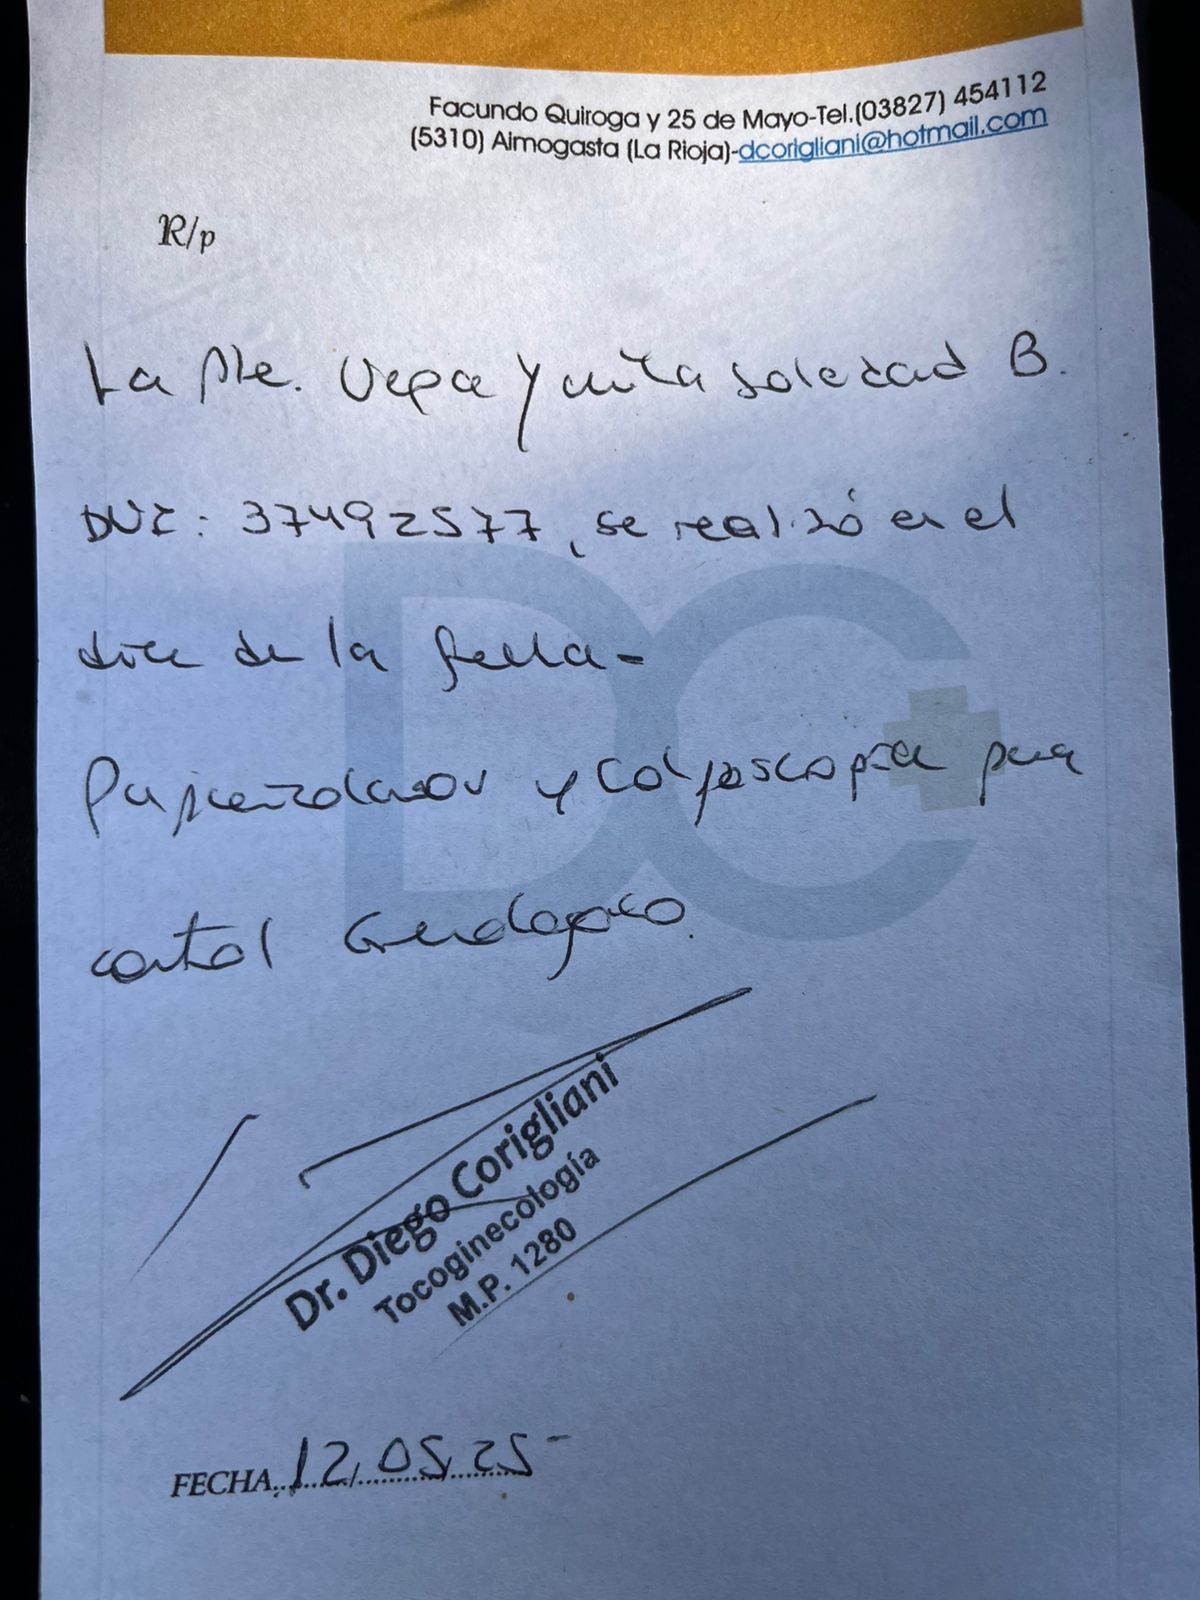 Facundo Quiroga y 25 de Mayo-Tel.(03827) 454112
(5310) Aimogasta (La Rioja)-dcorigliani@hotmail.com
R/p
La Pte. Vega Yanina Soledad B.
DNI: 37492577, se realizó en el
día de la fecha-
Papanicolaou y Colposcopía para
control Ginecológico.
Dr. Diego Corigliani
Tocoginecología
M.P. 1280
FECHA 12/05/25-
DC